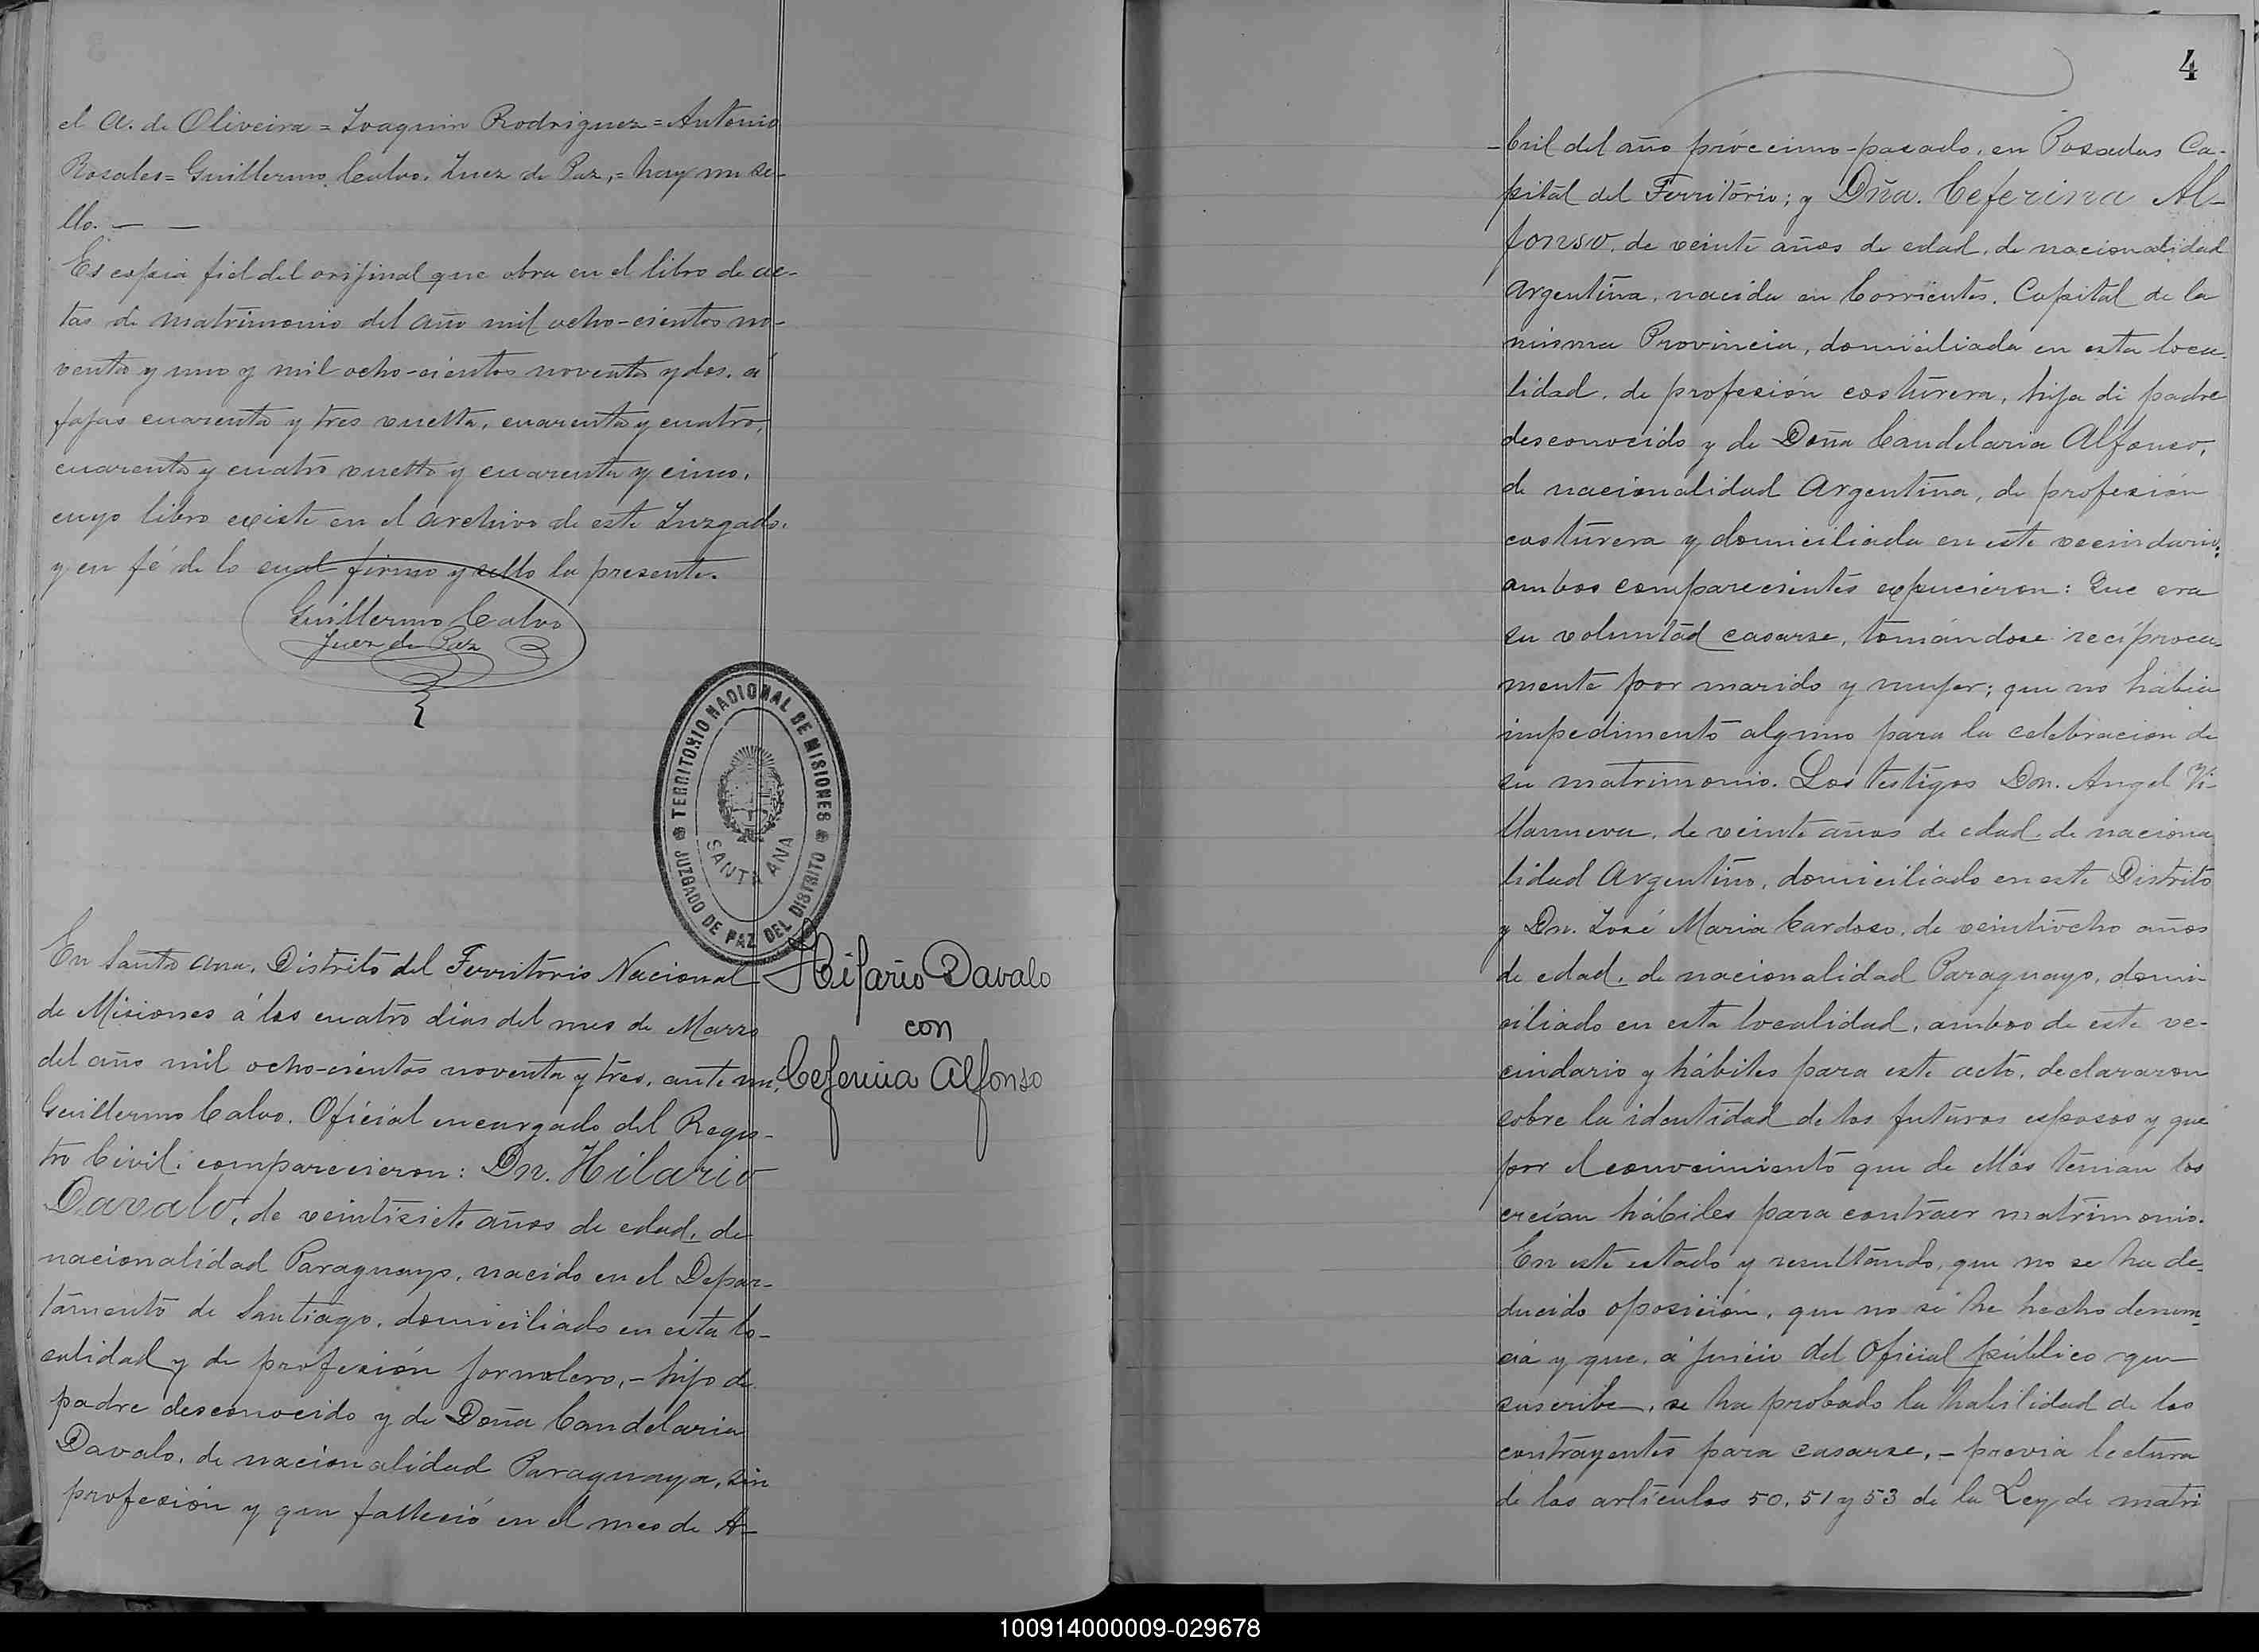 el A. de Oliveira = Joaquin Rodriguez = Antonio
Rosales = Guillermo Calvo. Juez de Paz, = hay un se-
llo. — —
Es copia fiel del orijinal que obra en el libro de ac-
tas de matrimonio del año mil ocho-cientos no-
venta y uno y mil ocho-cientos noventa y dos. á
fojas cuarenta y tres vuelta, cuarenta y cuatro,
cuarenta y cuatro vuelta y cuarenta y cinco.
cuyo libro existe en el archivo de este Juzgado.
y en fé de lo cual firmo y sello la presente.
Guillermo Calvo
Juez de Paz
TERRITORIO NACIONAL DE MISIONES
SANTA ANA
JUZGADO DE PAZ DEL DISTRITO
En Santa Ana, Distrito del Territorio Nacional
de Misiones á los cuatro dias del mes de Marzo
del año mil ocho-cientos noventa y tres, ante mi,
Guillermo Calvo. Oficial encargado del Regis-
tro Civil: comparecieron: Dn. Hilario
Davalo, de veintisiete años de edad, de
nacionalidad Paraguayo, nacido en el Depar-
tamento de Santiago, domiciliado en esta lo-
calidad y de profesión jornalero, - hijo de
padre desconocido y de Doña Candelaria
Davalo, de nacionalidad Paraguaya, sin
profesión y que falleció en el mes de A-
Hilario Davalo
con
Ceferina Alfonso
4
-bril del año próccimo-pasado, en Posadas Ca-
pital del Territorio; y Dña. Ceferina Al-
fonso, de veinte años de edad, de nacionalidad
Argentina, nacida en Corrientes, Capital de la
misma Provincia, domiciliada en esta loca-
lidad, de profesión costurera, hija di padre
desconocido y de Doña Candelaria Alfonso,
de nacionalidad Argentina, de profesión
costurera y domiciliada en este vecindario:
ambos comparecientes expucieron: Que era
su voluntad casarse, tomándose recíproca-
mente por marido y mujer; que no habia
impedimento alguno para la celebracion de
su matrimonio. Los testigos Don. Angel Vi-
llanueva, de veinte años de edad, de naciona
lidad Argentino, domiciliado en este Distrito
y Dn. José Maria Cardoso, de veintiocho años
de edad, de nacionalidad Paraguayo, domi-
ciliado en esta localidad, ambos de este ve-
cindario y hábiles para este acto, declararon
sobre la identidad de los futuros esposos y que
por el conocimiento que de ellos tenian los
creían hábiles para contraer matrimonio.
En este estado y resultando, que no se ha de-
ducido oposición, que no se ha hecho denun-
cia y que, á juicio del Oficial público que
suscribe, se ha probado la habilidad de los
contrayentes para casarse, - previa lectura
de los artículos 50, 51 y 53 de la Ley de matri
100914000009-029678